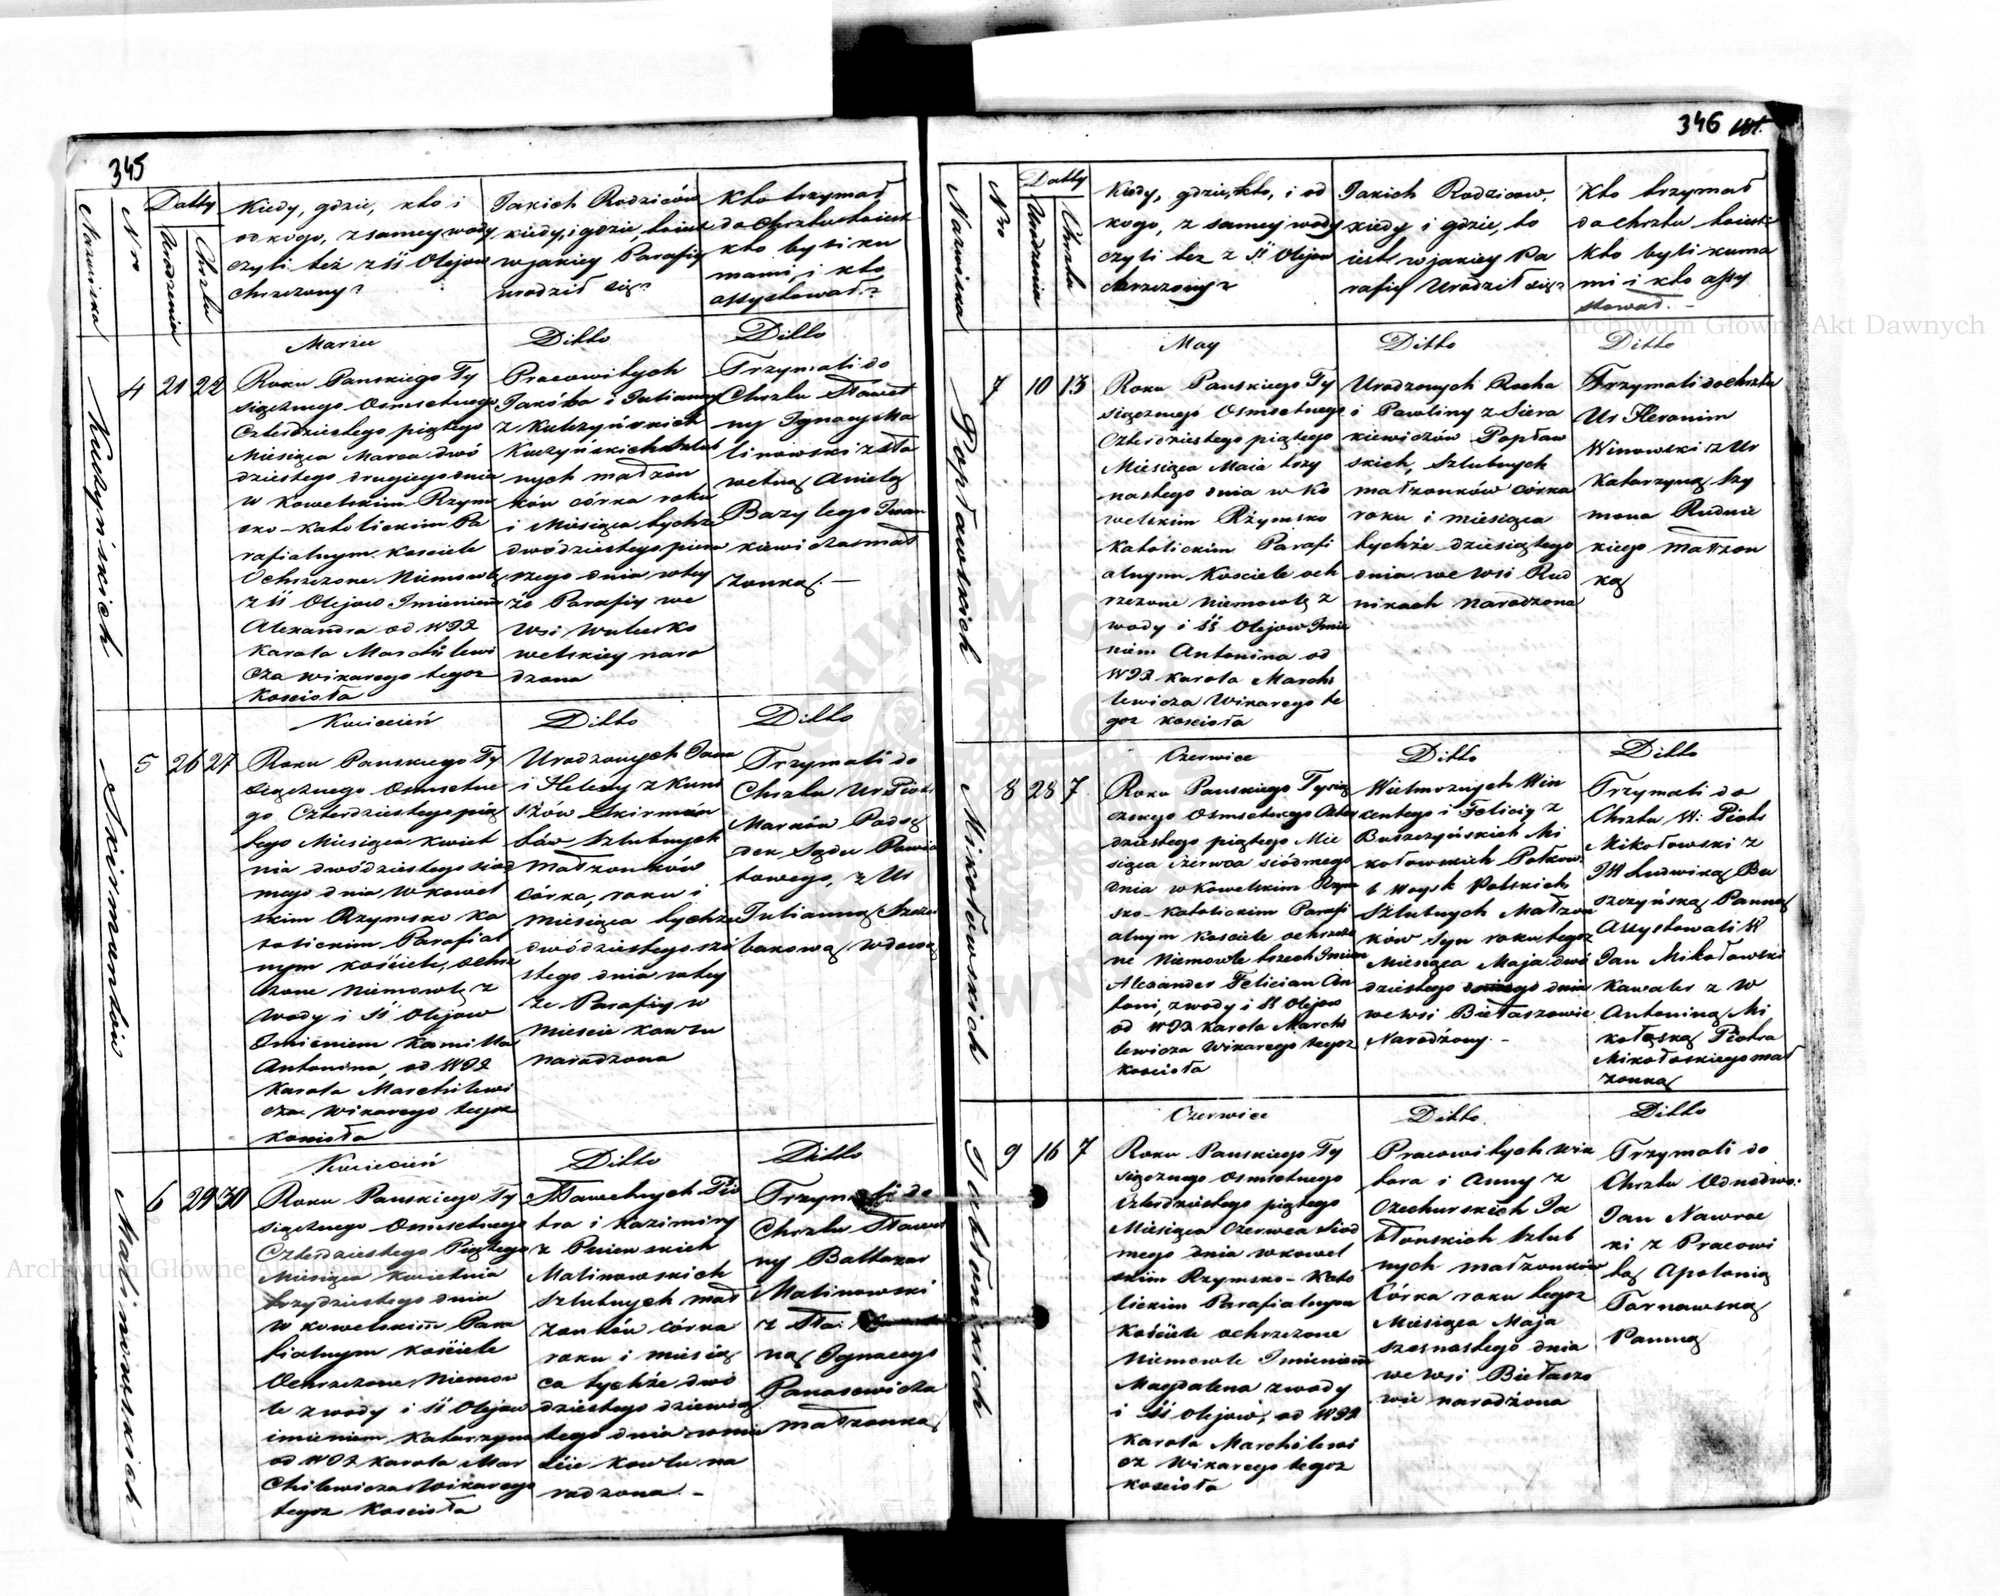 345
Nazwiska
Nro
Datty
Urodzenia
Chrztu
Kiedy, gdzie, kto i
od kogo, z samey wody
czyli też z SS Olejow
chrzczony?
Jakich Rodziców
kiedy, i gdzie, to iest
w jakiey Parafiy
urodził się?
Kto trzymał
do Chrztu to iest
kto byli ku
mami, i kto
assystował?
Kulzyńskich
4
21
22
Marzec
Roku Panskiego Ty
siącznego Osmsetnego
Czterdziestego piątego
Miesiąca Marca dwó
dziestego drugiego dnia
w Kowelskim Rzym
sko-Katolickim Pa
rafialnym Kosciele
Ochrzczone Niemowle
z SS Olejow Imieniem
Alexandra od WJX
Karola Marchilewi
cza wikarego tegoz
Kosciola
Ditto
Pracowitych
Jakóba i Julianny
z Kulczyńskich
Kuczyńskich szlub
nych małżon
ków córka roku
i Miesiąca tychże
dwódziestego pierw
szego dnia w tey
że Parafiy we
Wsi Wulce Ko
welskiey naro
dzona
Ditto
Trzymali do
Chrztu Sławet
ny Ignacy Ma
linowski z Sła
wetną Anielą
Bazylego Iwan
kiewicza mał
żonką. —
Skirmuntów
5
26
27
Kwiecień
Roku Panskiego Ty
siącznego Osmsetne
go Czterdziestego pią
tego Miesiąca Kwiet
nia dwódziestego siod
mego dnia w Kowel
skim Rzymsko Ka
tolickim Parafial
nym Kościele, ochrz
czone Niemowlę z
Wody i SS Olejow
Imieniem Kamilla
Antonina, od WJX
Karola Marchilewi
cza Wikarego tegoz
Kosciola
Ditto
Urodzonych Jana
i Heleny z Kuni
ków Skirmun
tów Szlubnych
Małżonków
Córka, roku i
miesiąca tychże
dwódziestego szó
stego dnia w tey
że Parafiy w
Miescie Kowlu
narodzona
Ditto
Trzymali do
Chrztu Ur Piotr
Marków Podsę
dek Sądu Powia
towego, z Ur
Julianną Szczer
bakową wdową
Malinowskich
6
29
30
Kwiecień
Roku Panskiego Ty
siącznego Osmsetnego
Czterdziestego Piątego
Miesiąca Kwietnia
trzydziestego dnia
w Kowelskim Para
fialnym Kościele
Ochrzczone Niemow
le z wody i SS Olejow
imieniem Katarzyna
od WJX Karola Mar
chilewicza Wikarego
tegoz Kosciola
Ditto
Sławetnych Pio
tra i Kazimiry
z Pniewskich
Malinowskich
szlubnych mał
żonków córka
roku i miesią
ca tychże dwó
dziestego dziewią
tego dnia w mie
ście Kowlu na
rodzona. —
Ditto
Trzymali do
Chrztu Sławet
ny Baltazar
Malinowski
z Sła:
ną Ignacego
Panasewicza
małżonką
346
Nazwiska
Nro
Datty
Urodzenia
Chrztu
Kiedy, gdzie, kto, i od
kogo, z samey wody
czyli tez z SS Olejow
chrzczony?
Jakich Rodzicow,
kiedy i gdzie, to
iest w jakiey Pa
rafiy Urodził się?
Kto trzymał
do chrztu to iest:
kto byli kuma
mi i kto assy
stował. —
Popławskich
7
10
13
May
Roku Panskiego Ty
siącznego Osmsetnego
Czterdziestego piątego
Miesiąca Maia trzy
nastego dnia w Ko
welskim Rżymsko
Katolickim Parafi
alnym Kosciele och
rzczone Niemowlę z
wody i SS Olejow Imie
niem Antonina od
WJX Karola Marchi
lewicza Wikarego te
goz Kosciola
Ditto
Urodzonych Rocha
i Pawliny z Siera
kiewiczów Popław
skich, Szlubnych
małżonków córka
roku i miesiąca
tychże dziesiątego
dnia we wsi Rud
nikach narodzona
Ditto
Trzymali do chrztu
Ur Hieronim
Winowski z Ur
Katarzyną Szy
mona Rudnic
kiego Małżon
ką
Mikołowskich
8
28
7
Czerwiec
Roku Panskiego Tysią
cznego Osmsetnego Czter
dziestego piątego Mie
siąca Czerwca siódmego
dnia w Kowelskim Rzym
sko-Katolickim Parafi
alnym Kosciele ochrzczo
ne Niemowle trzech Imion
Alexander Felician An
toni, z wody i SS Olejow
od WJX Karola Marchi
lewicza Wikarego tegoz
Kosciola
Ditto
Wielmoznych Win
centego i Felicij z
Buszczyńskich Mi
kołowskich Połkow:
b Woysk Polskich
Szlubnych Małżon
ków Syn roku tegoz
Miesiąca Maja dwó
dziestego dnia
we wsi Biełaszowie
Narodzony. —
Ditto
Trzymali do
Chrztu W: Piotr
Mikołowski z
JW Ludwiką Bu
szczyńską Panną
Assystowali W
Jan Mikołowski
Kawaler z W
Antoniną Mi
kołoską Piotra
Mikołoskiego mał
żonką
Jabłońskich
9
16
7
Czerwiec
Roku Panskiego Ty
siącznego Osmsetnego
Czterdziestego piątego
Miesiąca Czerwca Siód
mego dnia w Kowel
skim Rzymsko-Kato
lickim Parafialnym
Kościele ochrzczone
Niemowle Imieniem
Magdalena z wody
i SS Olejow, od WJX
Karola Marchilewi
cz Wikarego tegoz
Kosciola
Ditto
Pracowitych Wik
tora i Anny z
Ozechurskich Ja
błonskich szlub
nych małżonków
Córka roku tegoz
Miesiąca Maja
szesnastego dnia
we wsi Biełaszo
wie narodżona
Ditto
Trzymali do
Chrztu Odnodwo:
Jan Nawroc
ki z Pracowi
tą Apolonią
Tarnawską
Panną
Archiwum Główne Akt Dawnych
Archiwum Główne Akt Dawnych